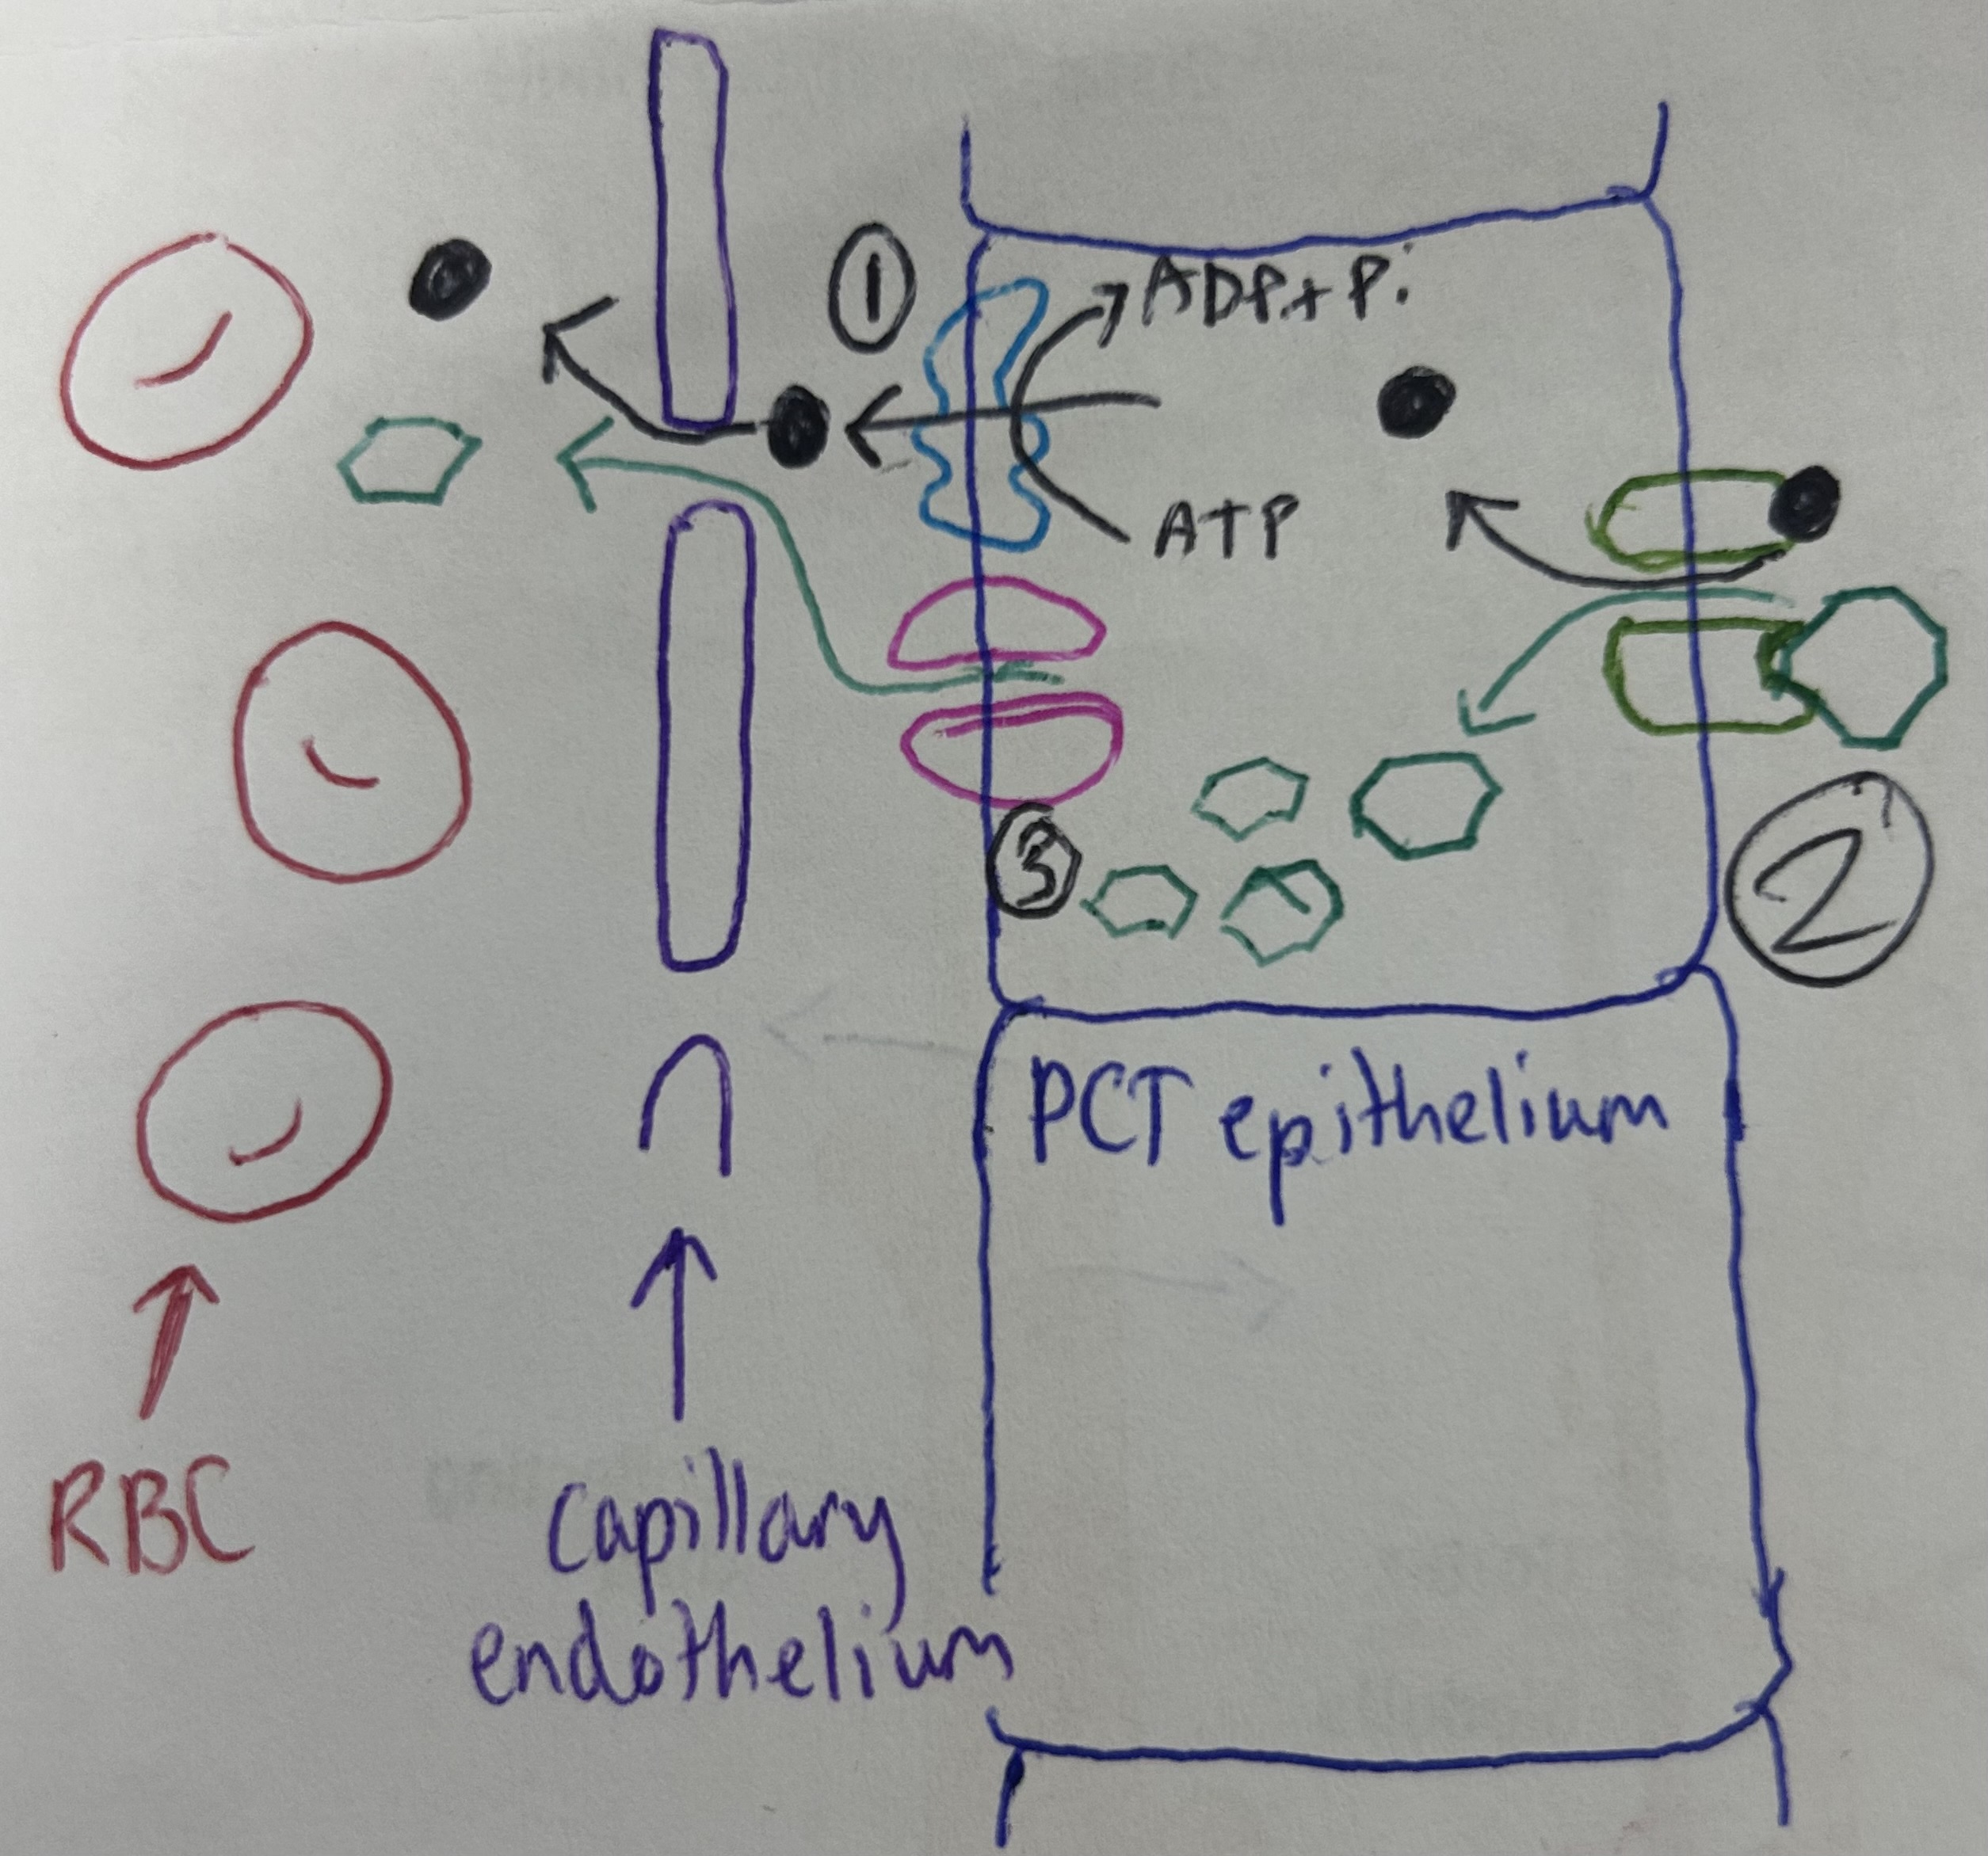 1
ADP + Pi
ATP
2
3
PCT epithelium
RBC
capillary
endothelium